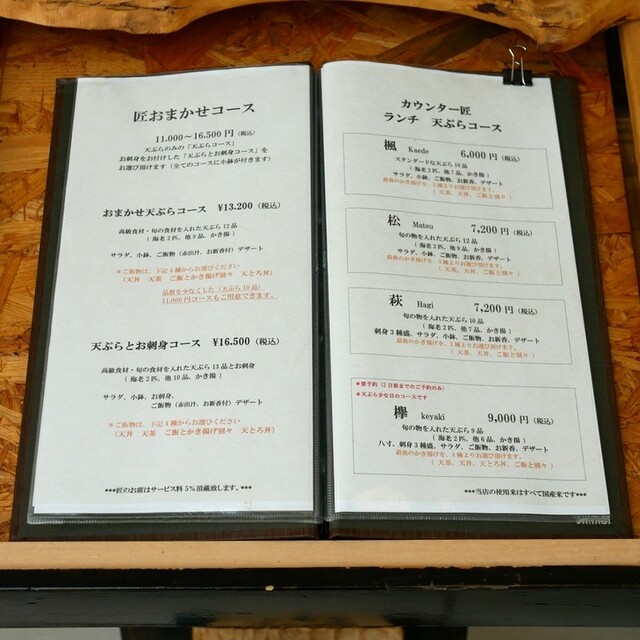 匠おまかせコース
11.000～16.500円（税込）
天ぷらのみの「天ぷらコース」
お刺身をお付けした「天ぷらとお刺身コース」を
お選び頂けます（全てのコースに小鉢が付きます）
おまかせ天ぷらコース ¥13.200（税込）
高級食材・旬の食材を入れた天ぷら12品
（海老2匹、他9品、かき揚）
サラダ、小鉢、ご飯物（赤出汁、お新香付）デザート
＊ご飯物は、下記4種からお選びください
（天丼 天茶 ご飯とかき揚げ別々 天とろ丼）
品数を少なくした（天ぷら10品）
11,000円コースもご用意できます。
天ぷらとお刺身コース ¥16.500（税込）
高級食材・旬の食材を入れた天ぷら13品とお刺身
（海老2匹、他10品、かき揚）
サラダ、小鉢、お刺身、
ご飯物（赤出汁、お新香付）デザート
＊ご飯物は、下記4種からお選びください
（天丼 天茶 ご飯とかき揚げ別々 天とろ丼）
***匠のお席はサービス料5%頂戴致します。***
カウンター匠
ランチ 天ぷらコース
楓 Kaede 6,000円（税込）
スタンダードな天ぷら10品
（海老2匹、他7品、かき揚）
サラダ、小鉢、ご飯物、お新香、デザート
最後のかき揚げを、3種よりお選び頂けます。
（天茶、天丼、ご飯と別々）
松 Matsu 7,200円（税込）
旬の物を入れた天ぷら12品
（海老2匹、他9品、かき揚）
サラダ、小鉢、ご飯物、お新香、デザート
最後のかき揚げを、3種よりお選び頂けます。
（天茶、天丼、ご飯と別々）
萩 Hagi 7,200円（税込）
旬の物を入れた天ぷら10品
（海老2匹、他7品、かき揚）
刺身3種盛、サラダ、小鉢、ご飯物、お新香、デザート
最後のかき揚げを、3種よりお選び頂けます。
（天茶、天丼、ご飯と別々）
＊要予約（2日前までのご予約のみ）
＊天ぷら少な目のコースです
欅 keyaki 9,000円（税込）
旬の物を入れた天ぷら9品
（海老2匹、他6品、かき揚）
八寸、刺身3種盛、サラダ、ご飯物、お新香、デザート
最後のかき揚げを、4種よりお選び頂けます。
（天茶、天丼、天とろ丼、ご飯と別々）
***当店の使用米はすべて国産米です***